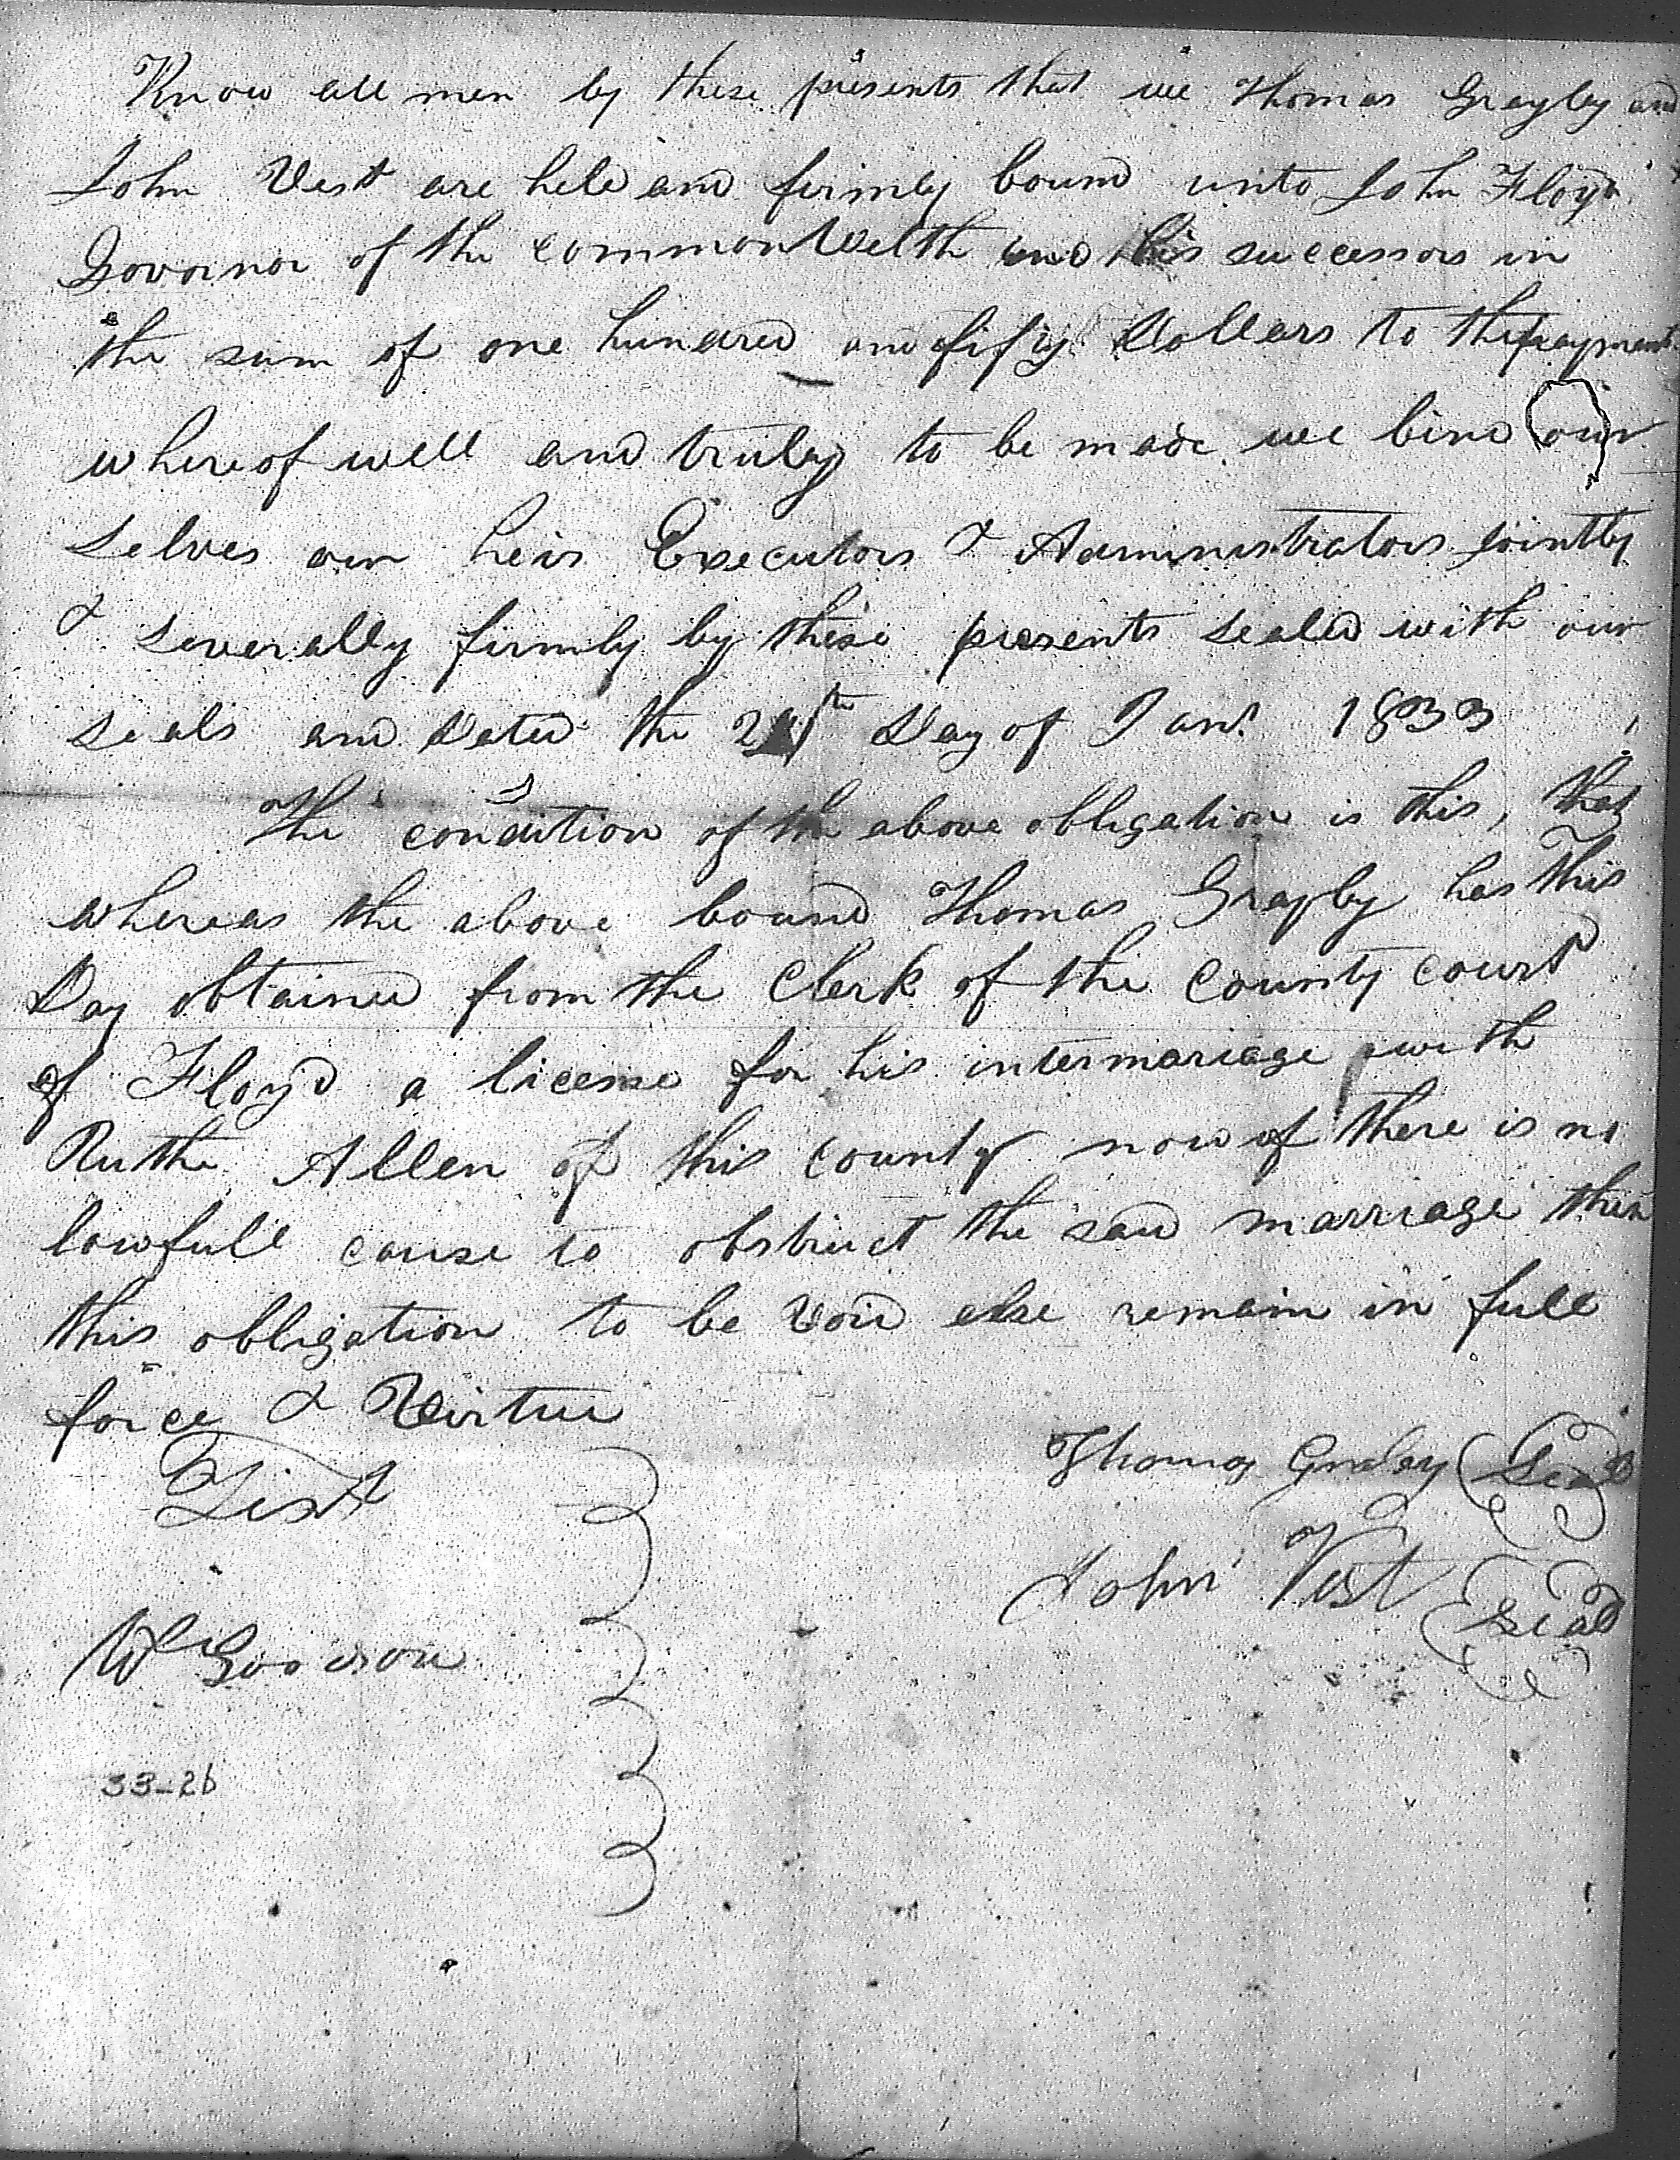 Know all men by these presents that we Thomas Grayley and
John Vest are held and firmly bound unto John Floyd
Govornor of the commonWelth and his successors in
the sum of one hundred and fifty Dollars to the payment
whereof well and truley to be made we bind our
selves our heirs Executors & Administrators jointly
& severally firmly by these presents sealed with our
seals and Dated the Day of Jany 1833
The condition of the above obligation is this, that
whereas the above bound Thomas Grayley has This
Day obtained from the Clerk of the County Court
of Floyd a license for his intermariage with
Ruthe Allen of this county now if there is no
lowfull cause to obstruct the said marriage then
this obligation to be Void else remain in full
force & Virtue
Test
Thomas Graley Seal
John Vest Seal
W Goodson
33-26